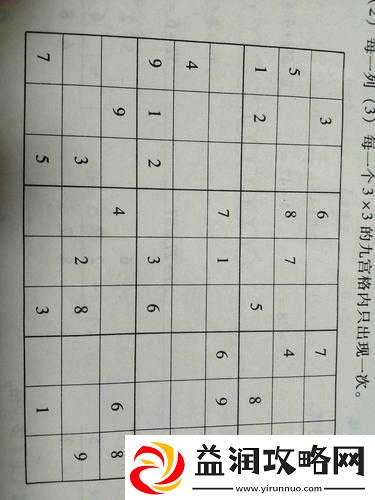 （2）每一列（3）每一个3×3的九宫格内只出现一次。
3 6 7
5 8 7 4
1 2 5 8
7 1 6 9
4
9 1 2 3 6
9 4 6 8
3 2 8 9
7 5 3 1
益润攻略网
www.yirunnuo.com